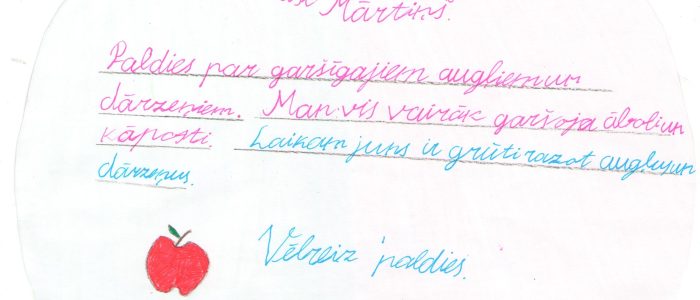 Mārtiņš.
Paldies par garšīgajiem augļiem un
dārzeņiem. Man vis vairāk garšoja āboli un
kāposti. Laikam jums ir grūti ražot augļus un
dārzeņus.
Vēlreiz paldies.